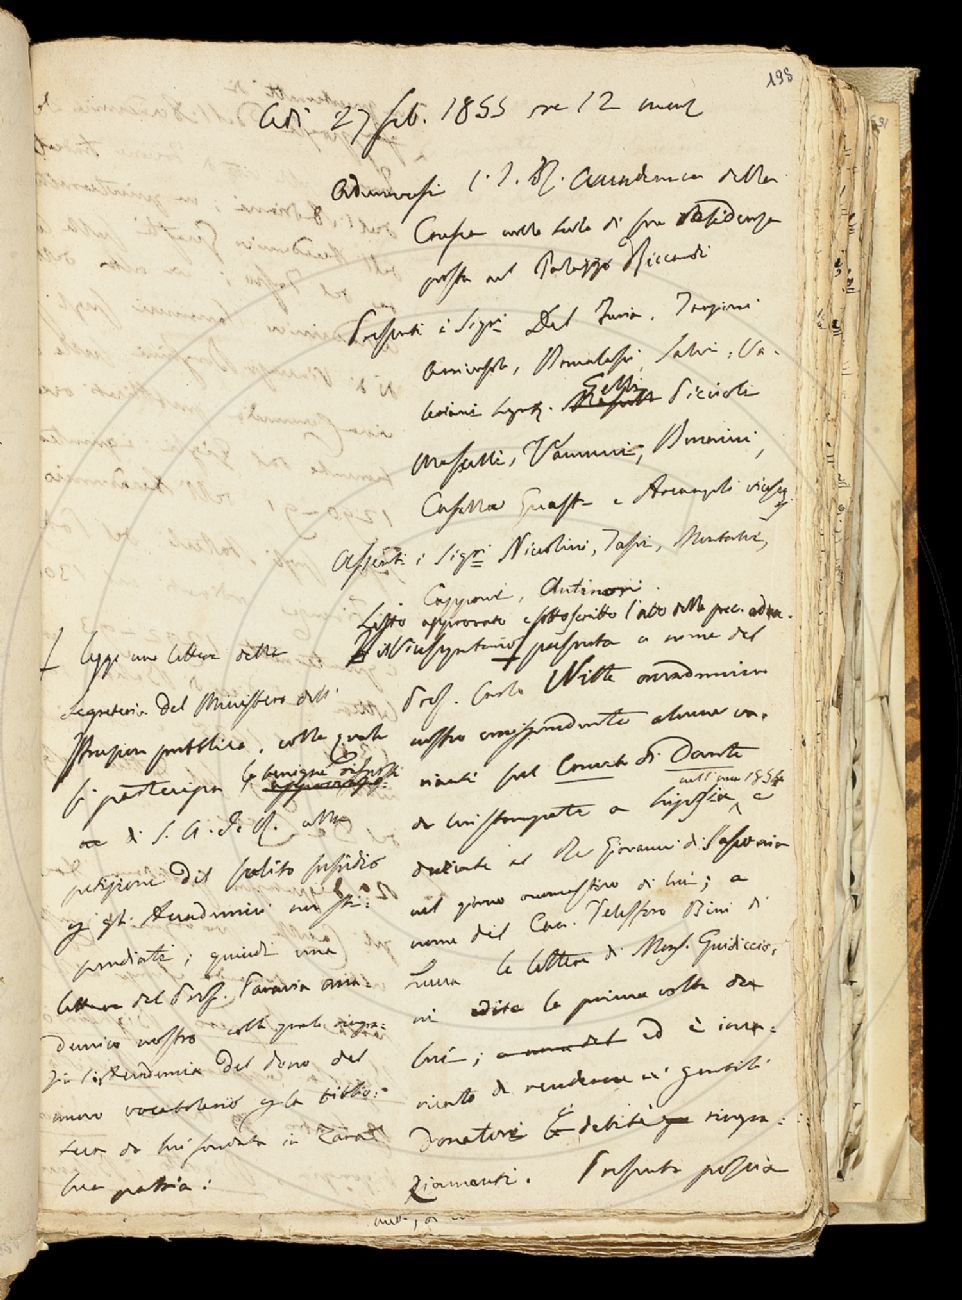 198
Adì 27 feb. 1855 ore 12 merid
Adunavasi l'I. e R. Accademia della
Crusca nelle sale di sua residenza
poste nel Palazzo Riccardi
Presenti i Sigri Del Furia, Targioni
Arcivesco, Brucalassi, Salvi, Va-
leriani Segret. Gelli Piccioli
Masselli, Vannucci, Bonaini,
Casella Guasti e Arcangeli viceseg.
Assenti i Sigri Niccolini, Tassi, Montalvi,
Capponi, Antinori.
Letto approvato e sottoscritto l'atto della prec. aduna.
il Vicesegretario presenta a nome del
Prof. Carlo Witte accademico
nostro corrispondente alcune va-
rianti sul Convito di Dante
nell'anno 1854
da lui stampate a Lipsia, e
dedicate al Re Giovanni di Sassonia
nel giorno onomastico di lui; a
nome del Cav. Telesforo Bini di
Lucca le lettere di Mons. Guidiccio-
ni edite la prima volta da
lui; a nome del ed è inca-
ricato di rendere ai gentili
Donatori i debiti ringra-
ziamenti. Presenta poscia
legge una lettera della
Segreteria del Ministero dell'
Istruzion pubblica, colla quale
si partecipa la benigna
di S. A. I. e R. alla
petizione del solito sussidio
agli Accademici non sti-
pendiati; quindi una
lettera del Prof. Paravia acca-
demico nostro colla quale ringra-
zia l'Accademia del dono del
nuovo vocabolario per la biblio-
teca da lui fondata in Zara
sua patria: